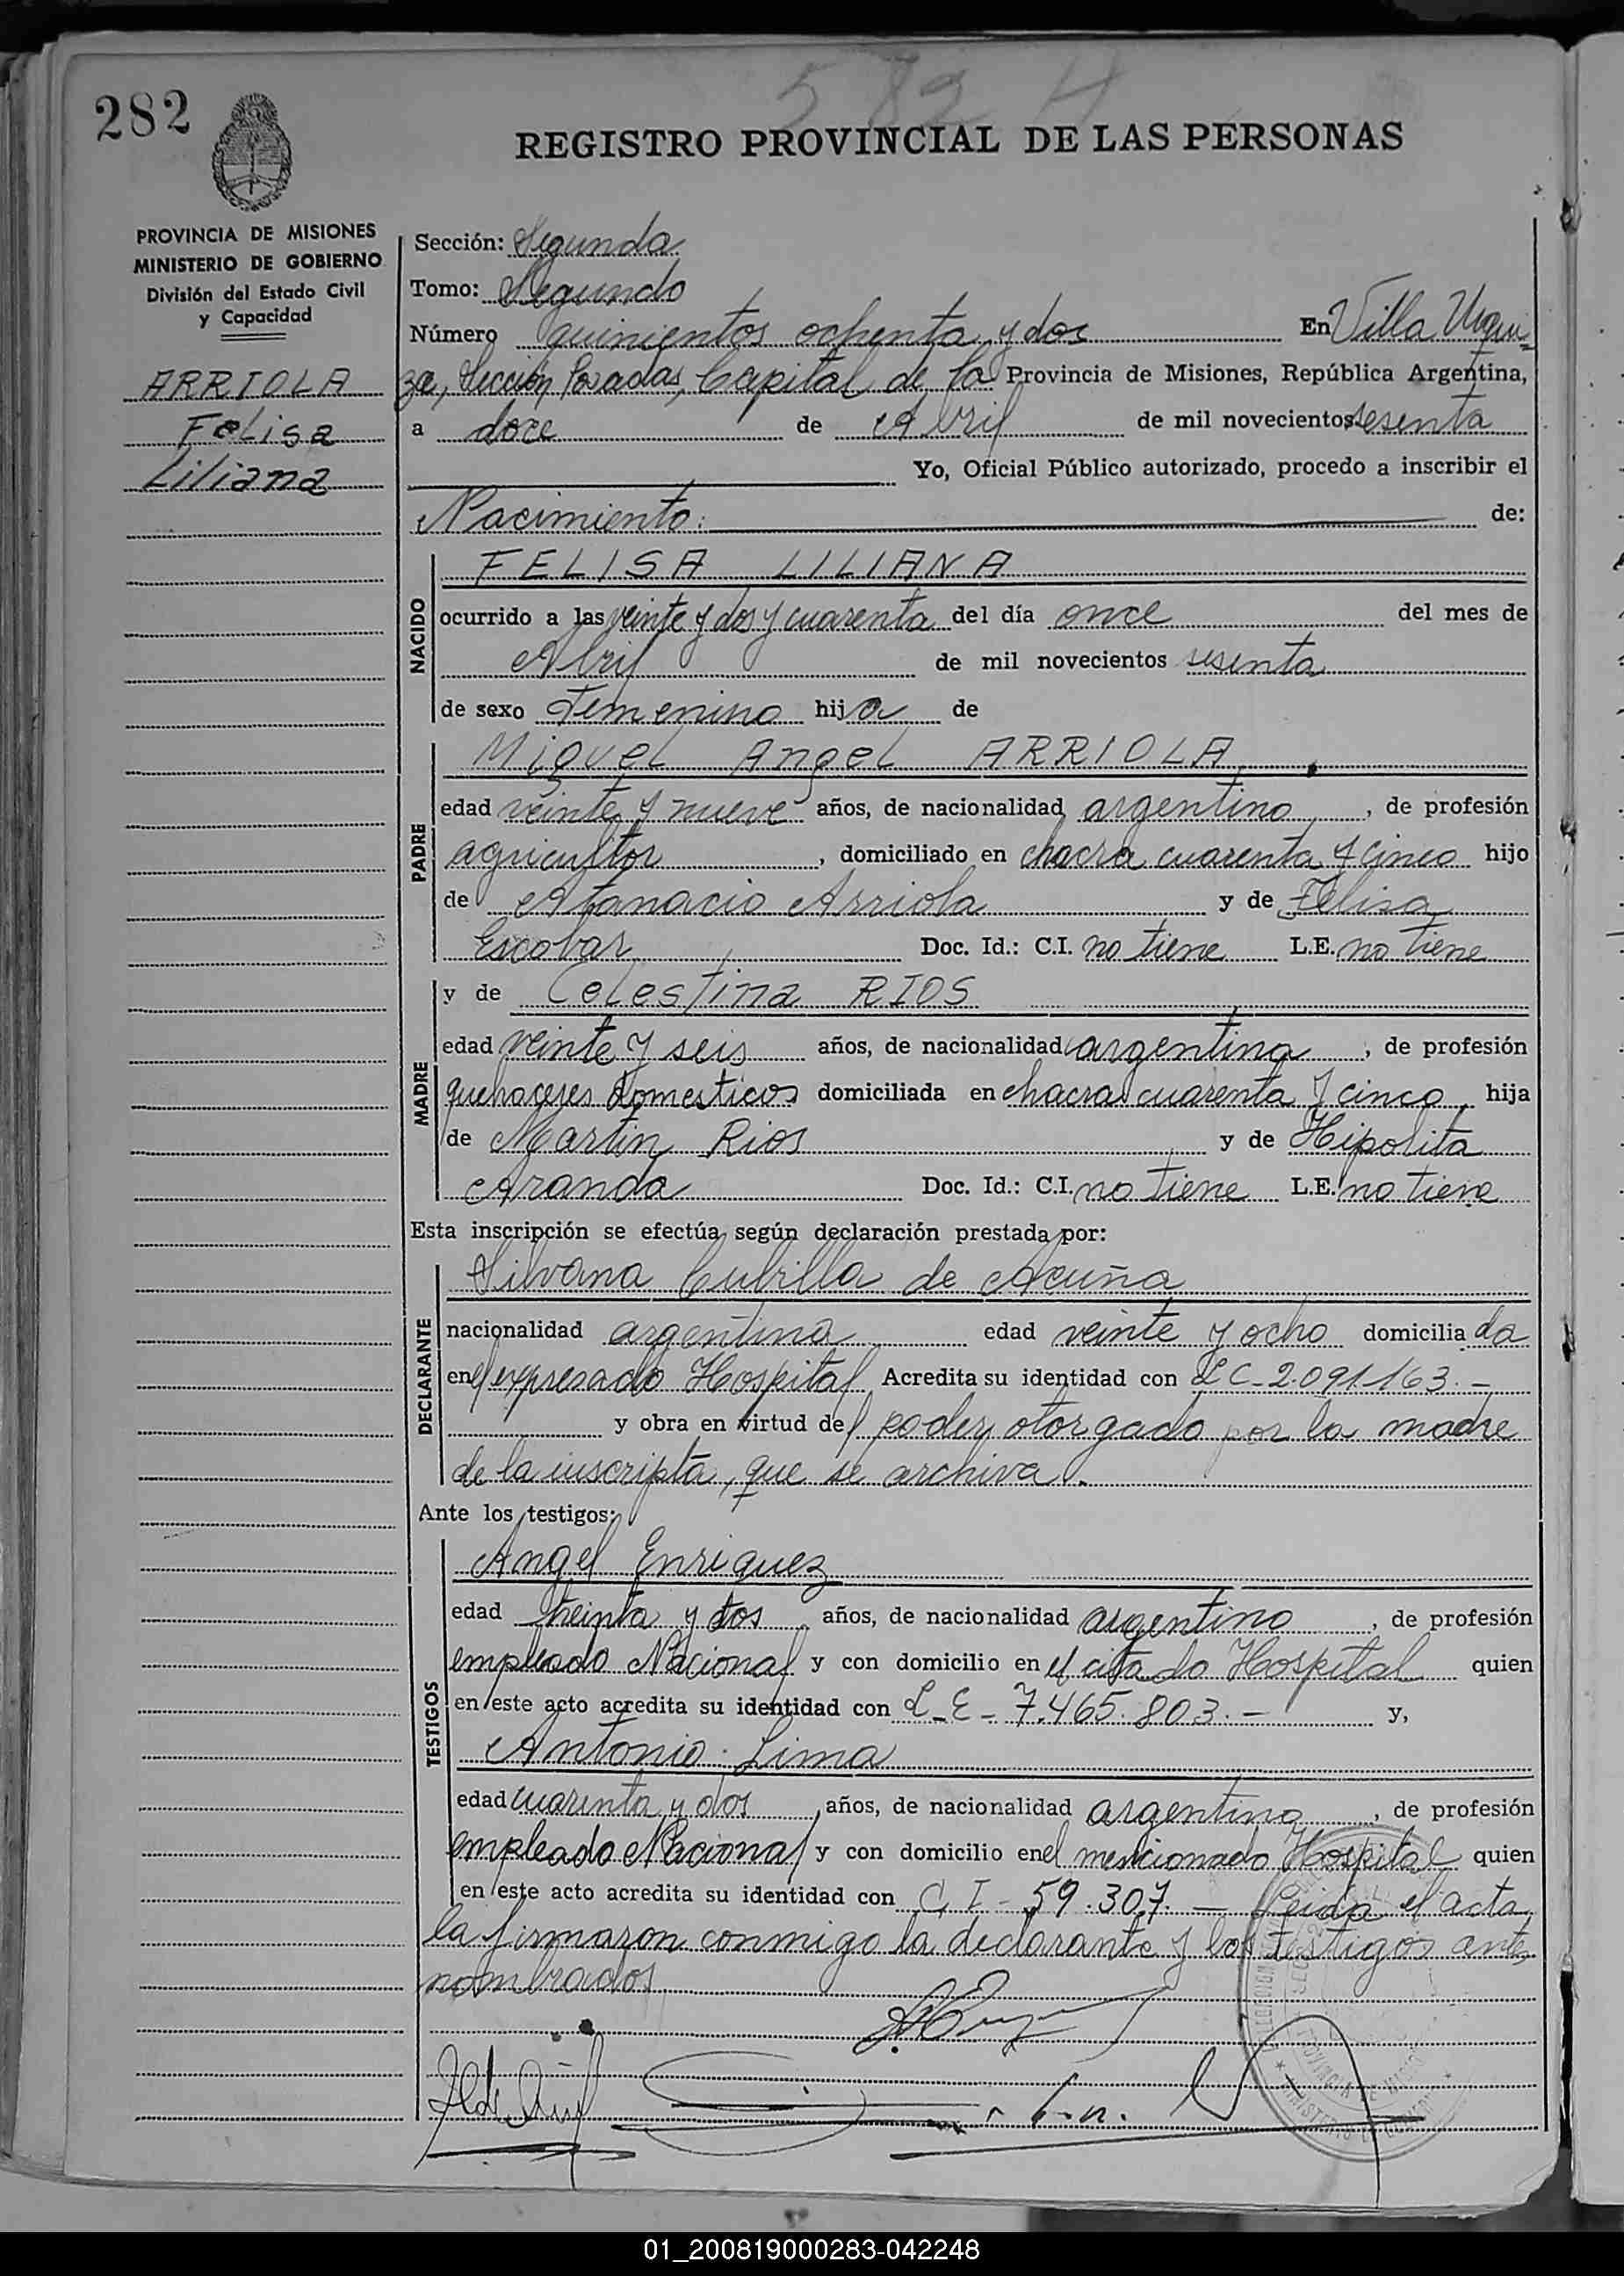 582 H
282
REGISTRO PROVINCIAL DE LAS PERSONAS
PROVINCIA DE MISIONES
MINISTERIO DE GOBIERNO
División del Estado Civil
y Capacidad
ARRIOLA
Felisa
Liliana
Sección: Segunda
Tomo: Segundo
Número quinientos ochenta y dos En Villa Urqui=
za, Sección Posadas, Capital de la Provincia de Misiones, República Argentina,
a doce de Abril de mil novecientos sesenta
Yo, Oficial Público autorizado, procedo a inscribir el
Nacimiento: de:
NACIDO
FELISA LILIANA
ocurrido a las veinte y dos y cuarenta del día once del mes de
Abril de mil novecientos sesenta
de sexo Femenino hija de
PADRE
Miguel Angel ARRIOLA
edad veinte y nueve años, de nacionalidad argentino, de profesión
agricultor, domiciliado en chacra cuarenta y cinco hijo
de Atanacio Arriola y de Felisa
Escobar Doc. Id.: C.I. no tiene L.E. no tiene
MADRE
y de Celestina RIOS
edad veinte y seis años, de nacionalidad argentina, de profesión
quehaceres domesticos domiciliada en chacra cuarenta y cinco, hija
de Martin Rios y de Hipolita
Aranda Doc. Id.: C.I. no tiene L.E. no tiene
Esta inscripción se efectúa según declaración prestada por:
DECLARANTE
Silvana Cubilla de Acuña
nacionalidad argentina edad veinte y ocho domiciliada
en el expresado Hospital Acredita su identidad con L C - 2.091.163.-
y obra en virtud del poder otorgado por la madre
de la inscripta, que se archiva.
Ante los testigos:
TESTIGOS
Angel Enriquez
edad treinta y dos años, de nacionalidad argentino, de profesión
empleado Nacional y con domicilio en el citado Hospital quien
en este acto acredita su identidad con L-E- 7.465.803.- y,
Antonio Lima
edad cuarenta y dos, años, de nacionalidad argentino, de profesión
empleado Nacional y con domicilio en el mencionado Hospital quien
en este acto acredita su identidad con C I - 59.307.- Leida el acta
la firmaron conmigo la declarante y los testigos antes
nombrados
01_200819000283-042248